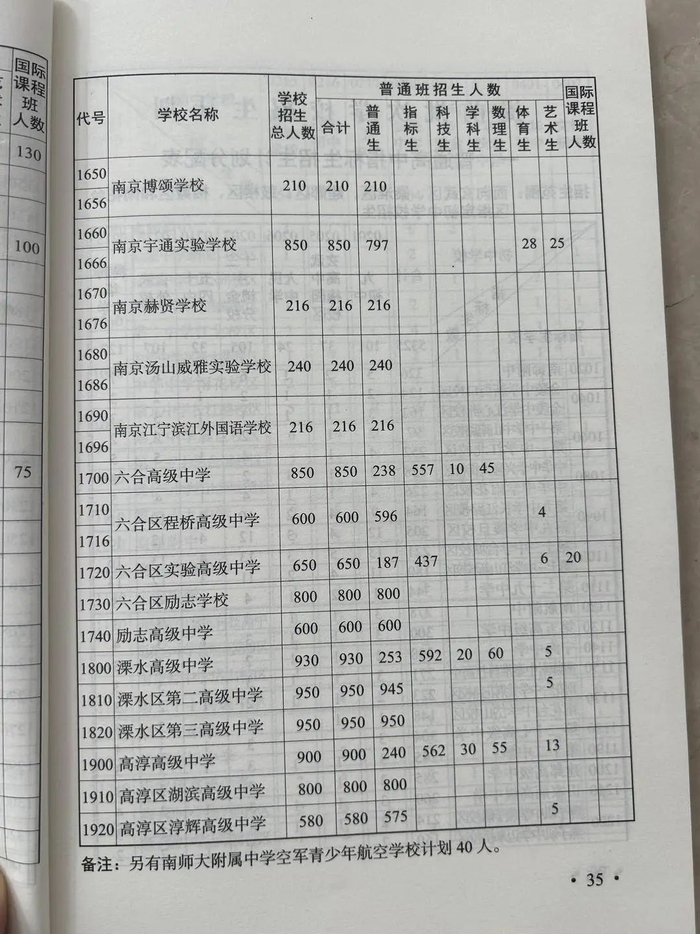 国际
课程
班
人数
130
100
75
代号 学校名称 学校招生总人数 普通班招生人数 国际课程班人数
合计 普通生 指标生 科技生 学科生 数理生 体育生 艺术生
1650
南京博颂学校 210 210 210
1656
1660
南京宇通实验学校 850 850 797 28 25
1666
1670
南京赫贤学校 216 216 216
1676
1680
南京汤山威雅实验学校 240 240 240
1686
1690
南京江宁滨江外国语学校 216 216 216
1696
1700 六合高级中学 850 850 238 557 10 45
1710
六合区程桥高级中学 600 600 596 4
1716
1720 六合区实验高级中学 650 650 187 437 6 20
1730 六合区励志学校 800 800 800
1740 励志高级中学 600 600 600
1800 溧水高级中学 930 930 253 592 20 60 5
1810 溧水区第二高级中学 950 950 945 5
1820 溧水区第三高级中学 950 950 950
1900 高淳高级中学 900 900 240 562 30 55 13
1910 高淳区湖滨高级中学 800 800 800
1920 高淳区淳辉高级中学 580 580 575 5
备注：另有南师大附属中学空军青少年航空学校计划 40 人。
· 35 ·